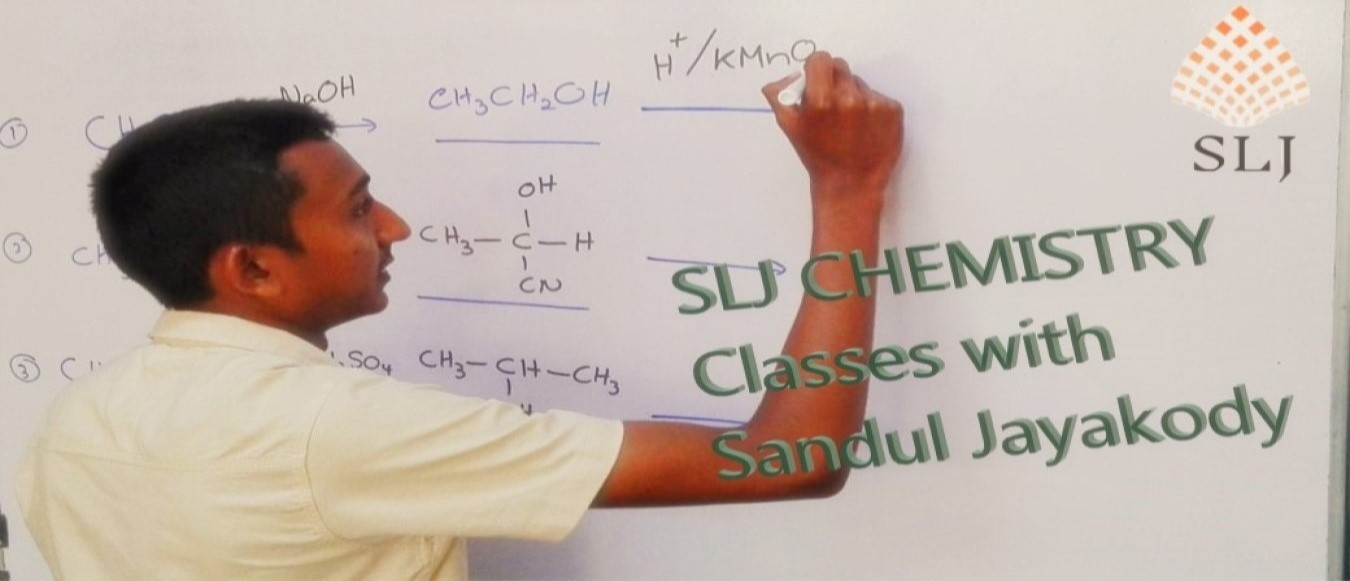 H⁺/KMnO
① CH NaOH CH₃CH₂OH
OH
② CH CH₃—C—H
CN
③ C SO₄ CH₃—CH—CH₃
SLJ
SLJ CHEMISTRY
Classes with
Sandul Jayakody